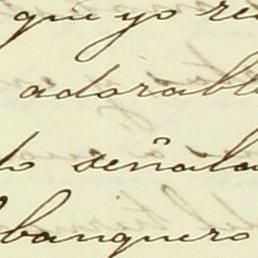 que yo re
adorabl
lo señala
banquero